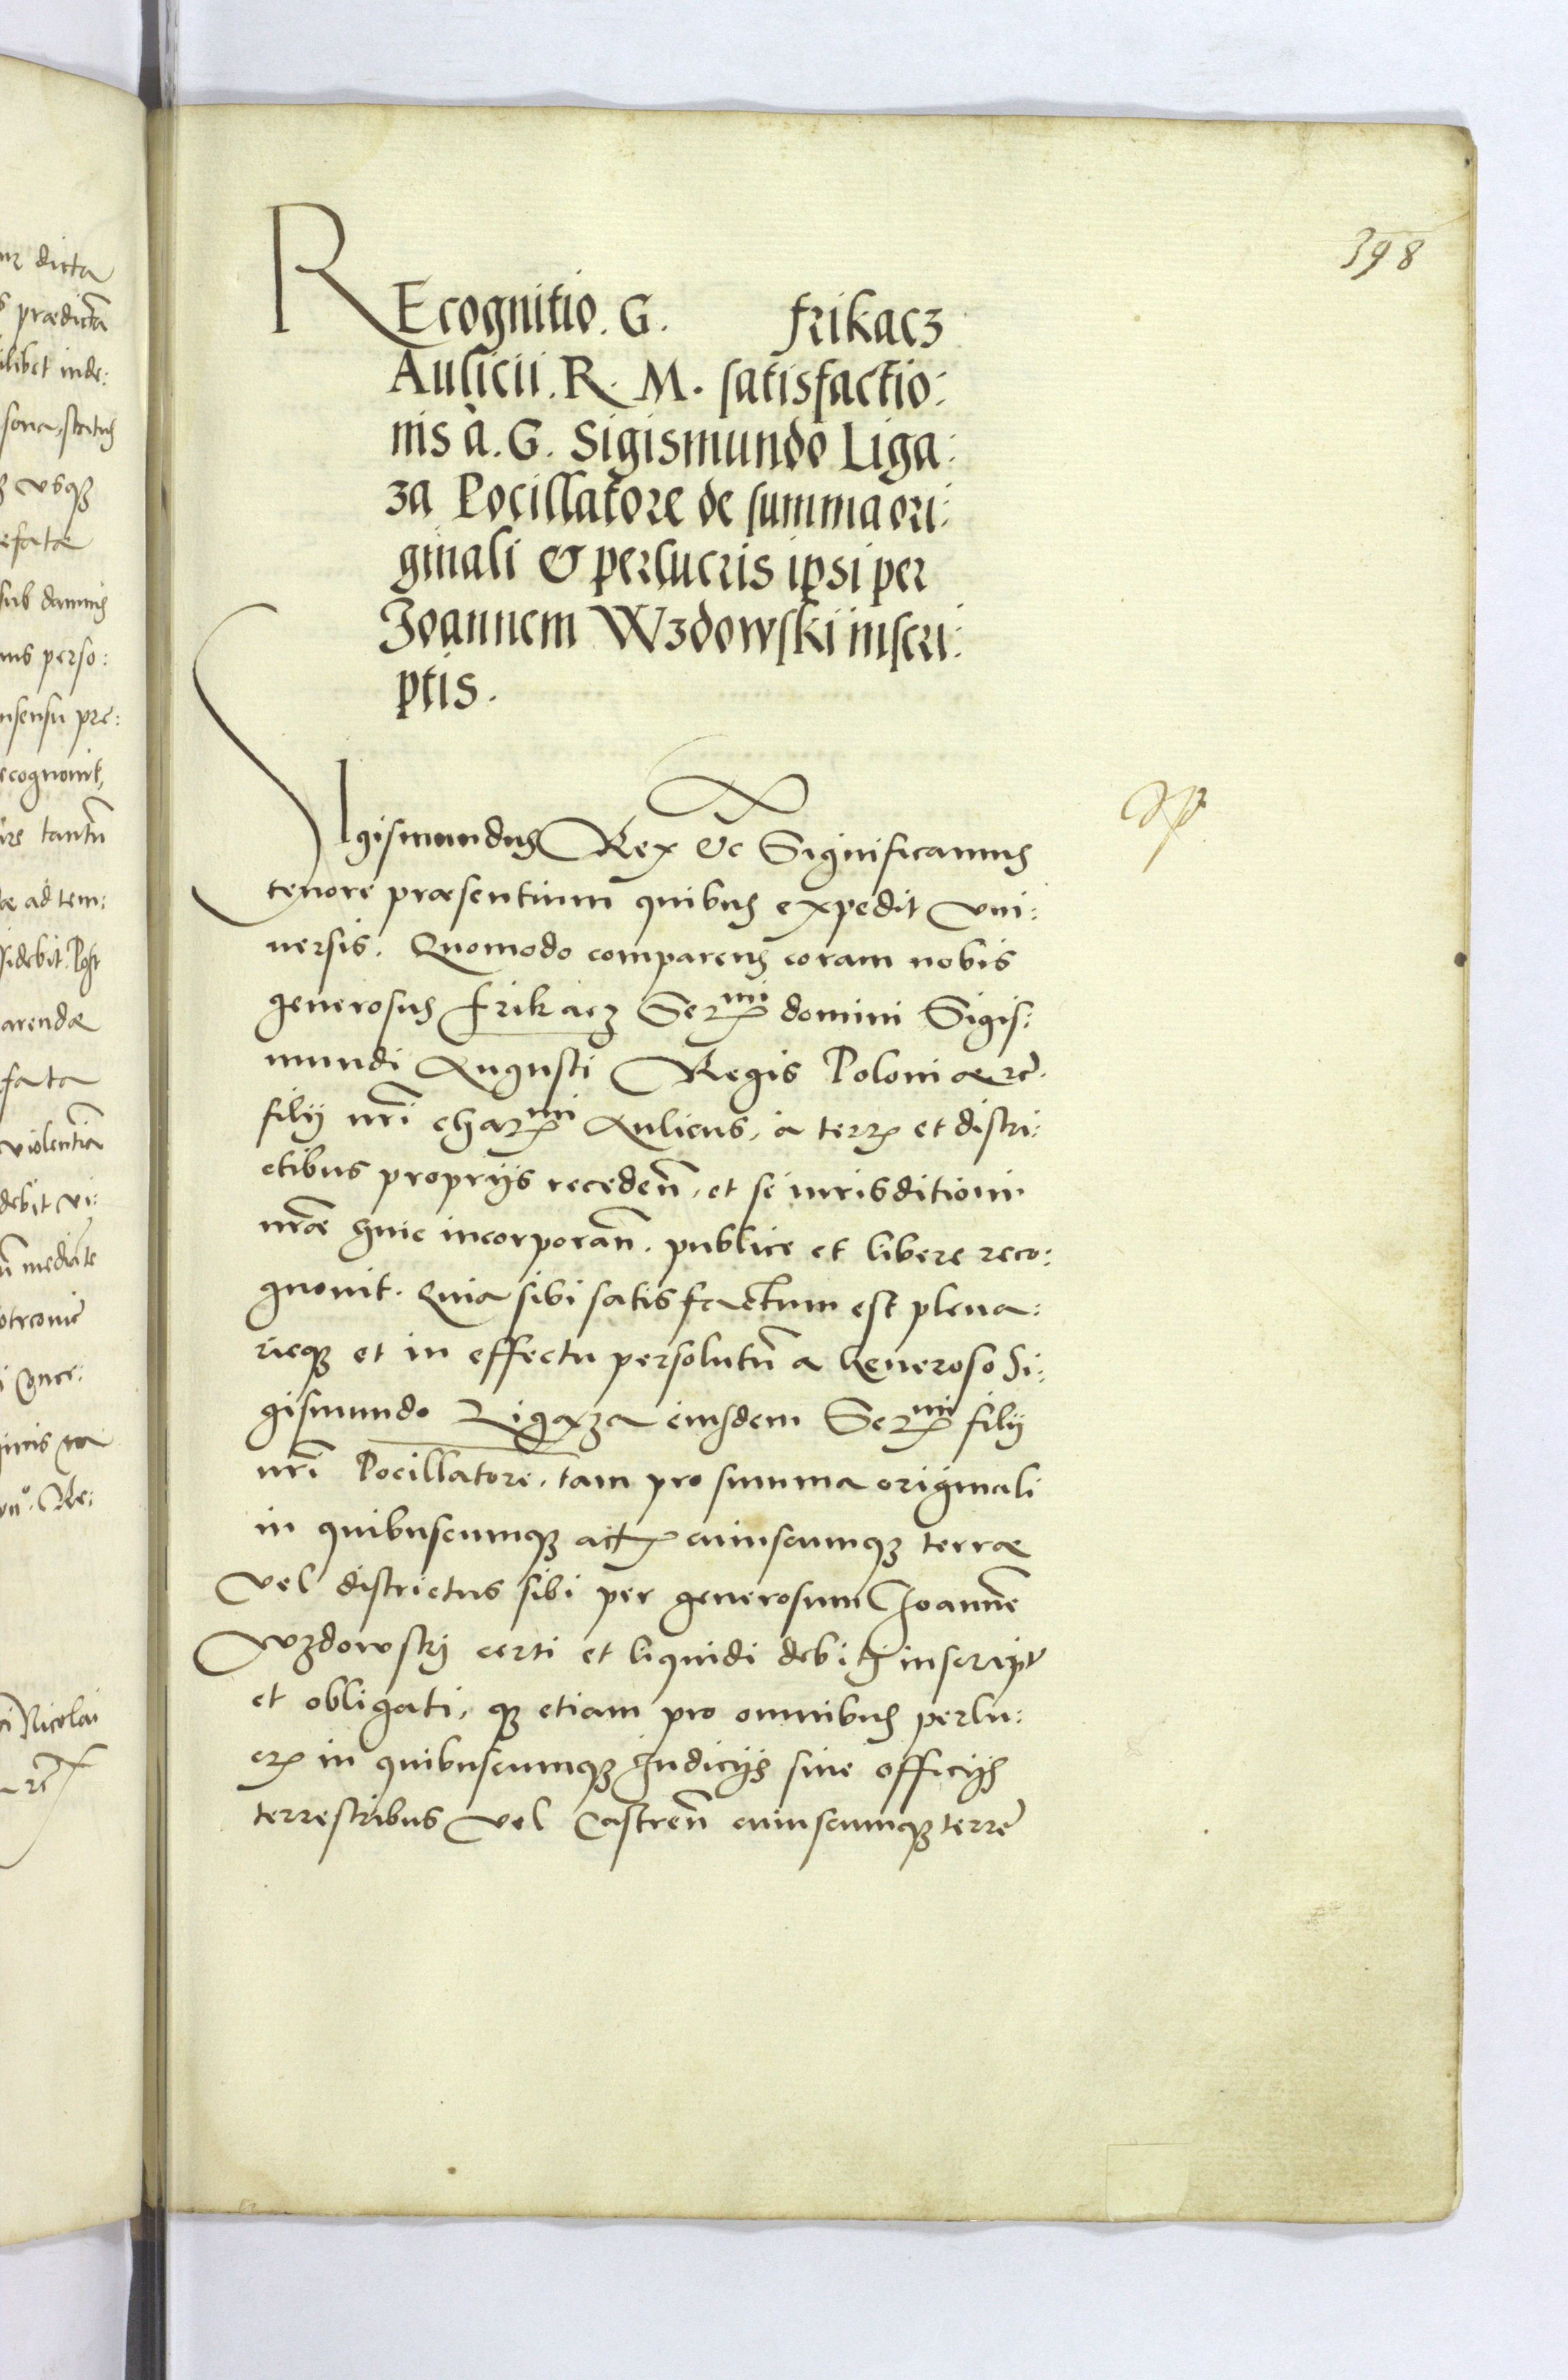 398
REcognitio. G. frikacz
Aulicii. R. M. satisfactio:
nis à. G. Sigismundo Liga:
za Pocillatore de summa ori:
ginali & perlucris ipsi per
Joannem Wzdowskÿ inscri:
ptis.
SIgismundus Rex &c Significamus
tenore præsentium quibus expedit vni:
uersis. Quomodo comparens coram nobis
generosus frikacz Sermi domini Sigis:
mundi Augusti Regis Poloniæ rc̃.
filÿ nr̃i charmi Aulicus, a terr et distri:
ctibus proprijs recedeñ, et se iurisditioni
nr̃æ huic incorporañ. publice et libere reco:
gnouit. Quia sibi satisfactum est plena:
rieq3 et in effectu persolutũ a Generoso Si:
gismundo Ligaza eiusdem Sermi filÿ
nr̃i Pocillatore, tam pro summa originali
in quibuscumq3 act cuiuscumq3 terræ
vel districtus sibi per generosum Joannẽ
Wzdowskj certi et liquidi debiti inscript
et obligati, q3 etiam pro omnibus perlu:
cr in quibuscumq3 Judicijs siue officijs
terrestribus vel Castreñ cuiuscumq3 terrẽ
dicta
prædictã
inde:
vsq3
efatæ
sub damnis
perso:
nsensu pre:
ecognouit,
tantũ
ad tem:
sidebit. Post
arendæ
fata
violentiã
debit vi:
mediãte
Nicolai